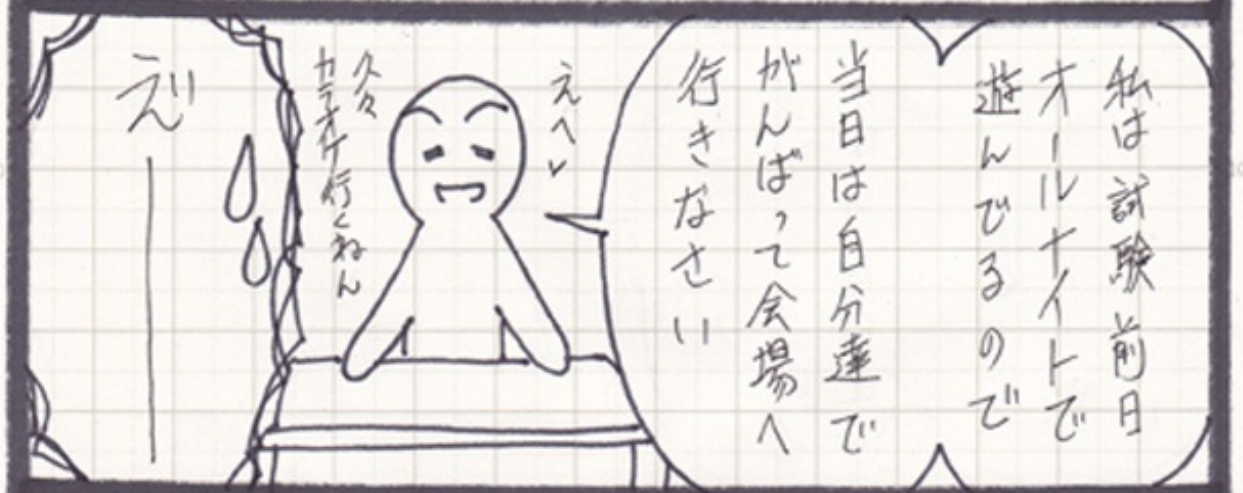 私は試験前日
オールナイトで
遊んでるので
当日は自分達で
がんばって会場へ
行きなさい
えへ✓
久々
カラオケ行くねん
えぇ゛ー